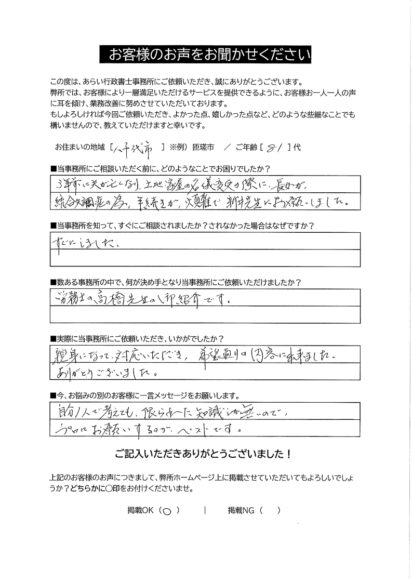 お客様のお声をお聞かせください
この度は、あらい行政書士事務所にご依頼いただき、誠にありがとうございます。
弊所では、お客様により一層満足いただけるサービスを提供できるように、お客様お一人一人の声
に耳を傾け、業務改善に努めさせていただいております。
もしよろしければ今回ご依頼いただき、よかった点、嬉しかった点など、どのような些細なことでも
構いませんので、教えていただけますと幸いです。
お住まいの地域【八千代市】※例）匝瑳市 ／ ご年齢【81】代
■当事務所にご相談いただく前に、どのようなことでお困りでしたか？
3年前に夫が亡くなり土地家屋の名義変更の際に、長女が、
手続きが、困難で新井先生にお願いしました。
■当事務所を知って、すぐにご相談されましたか？されなかった場合はなぜですか？
すぐにしました。
■数ある事務所の中で、何が決め手となり当事務所にご依頼いただけましたか？
高橋先生のご紹介です。
■実際に当事務所にご依頼いただき、いかがでしたか？
親身になって、対応いただき、希望通りの内容に出来ました。
ありがとうございました。
■今、お悩みの別のお客様に一言メッセージをお願いします。
自分1人で考えても、限られた知識しか無いので、
プロにお願いするのが、ベストです。
ご記入いただきありがとうございました！
上記のお客様のお声につきまして、弊所ホームページ上に掲載させていただいてもよろしいでしょ
うか？どちらかに〇印をお付けくださいませ。
掲載OK（○） ｜ 掲載NG（ ）